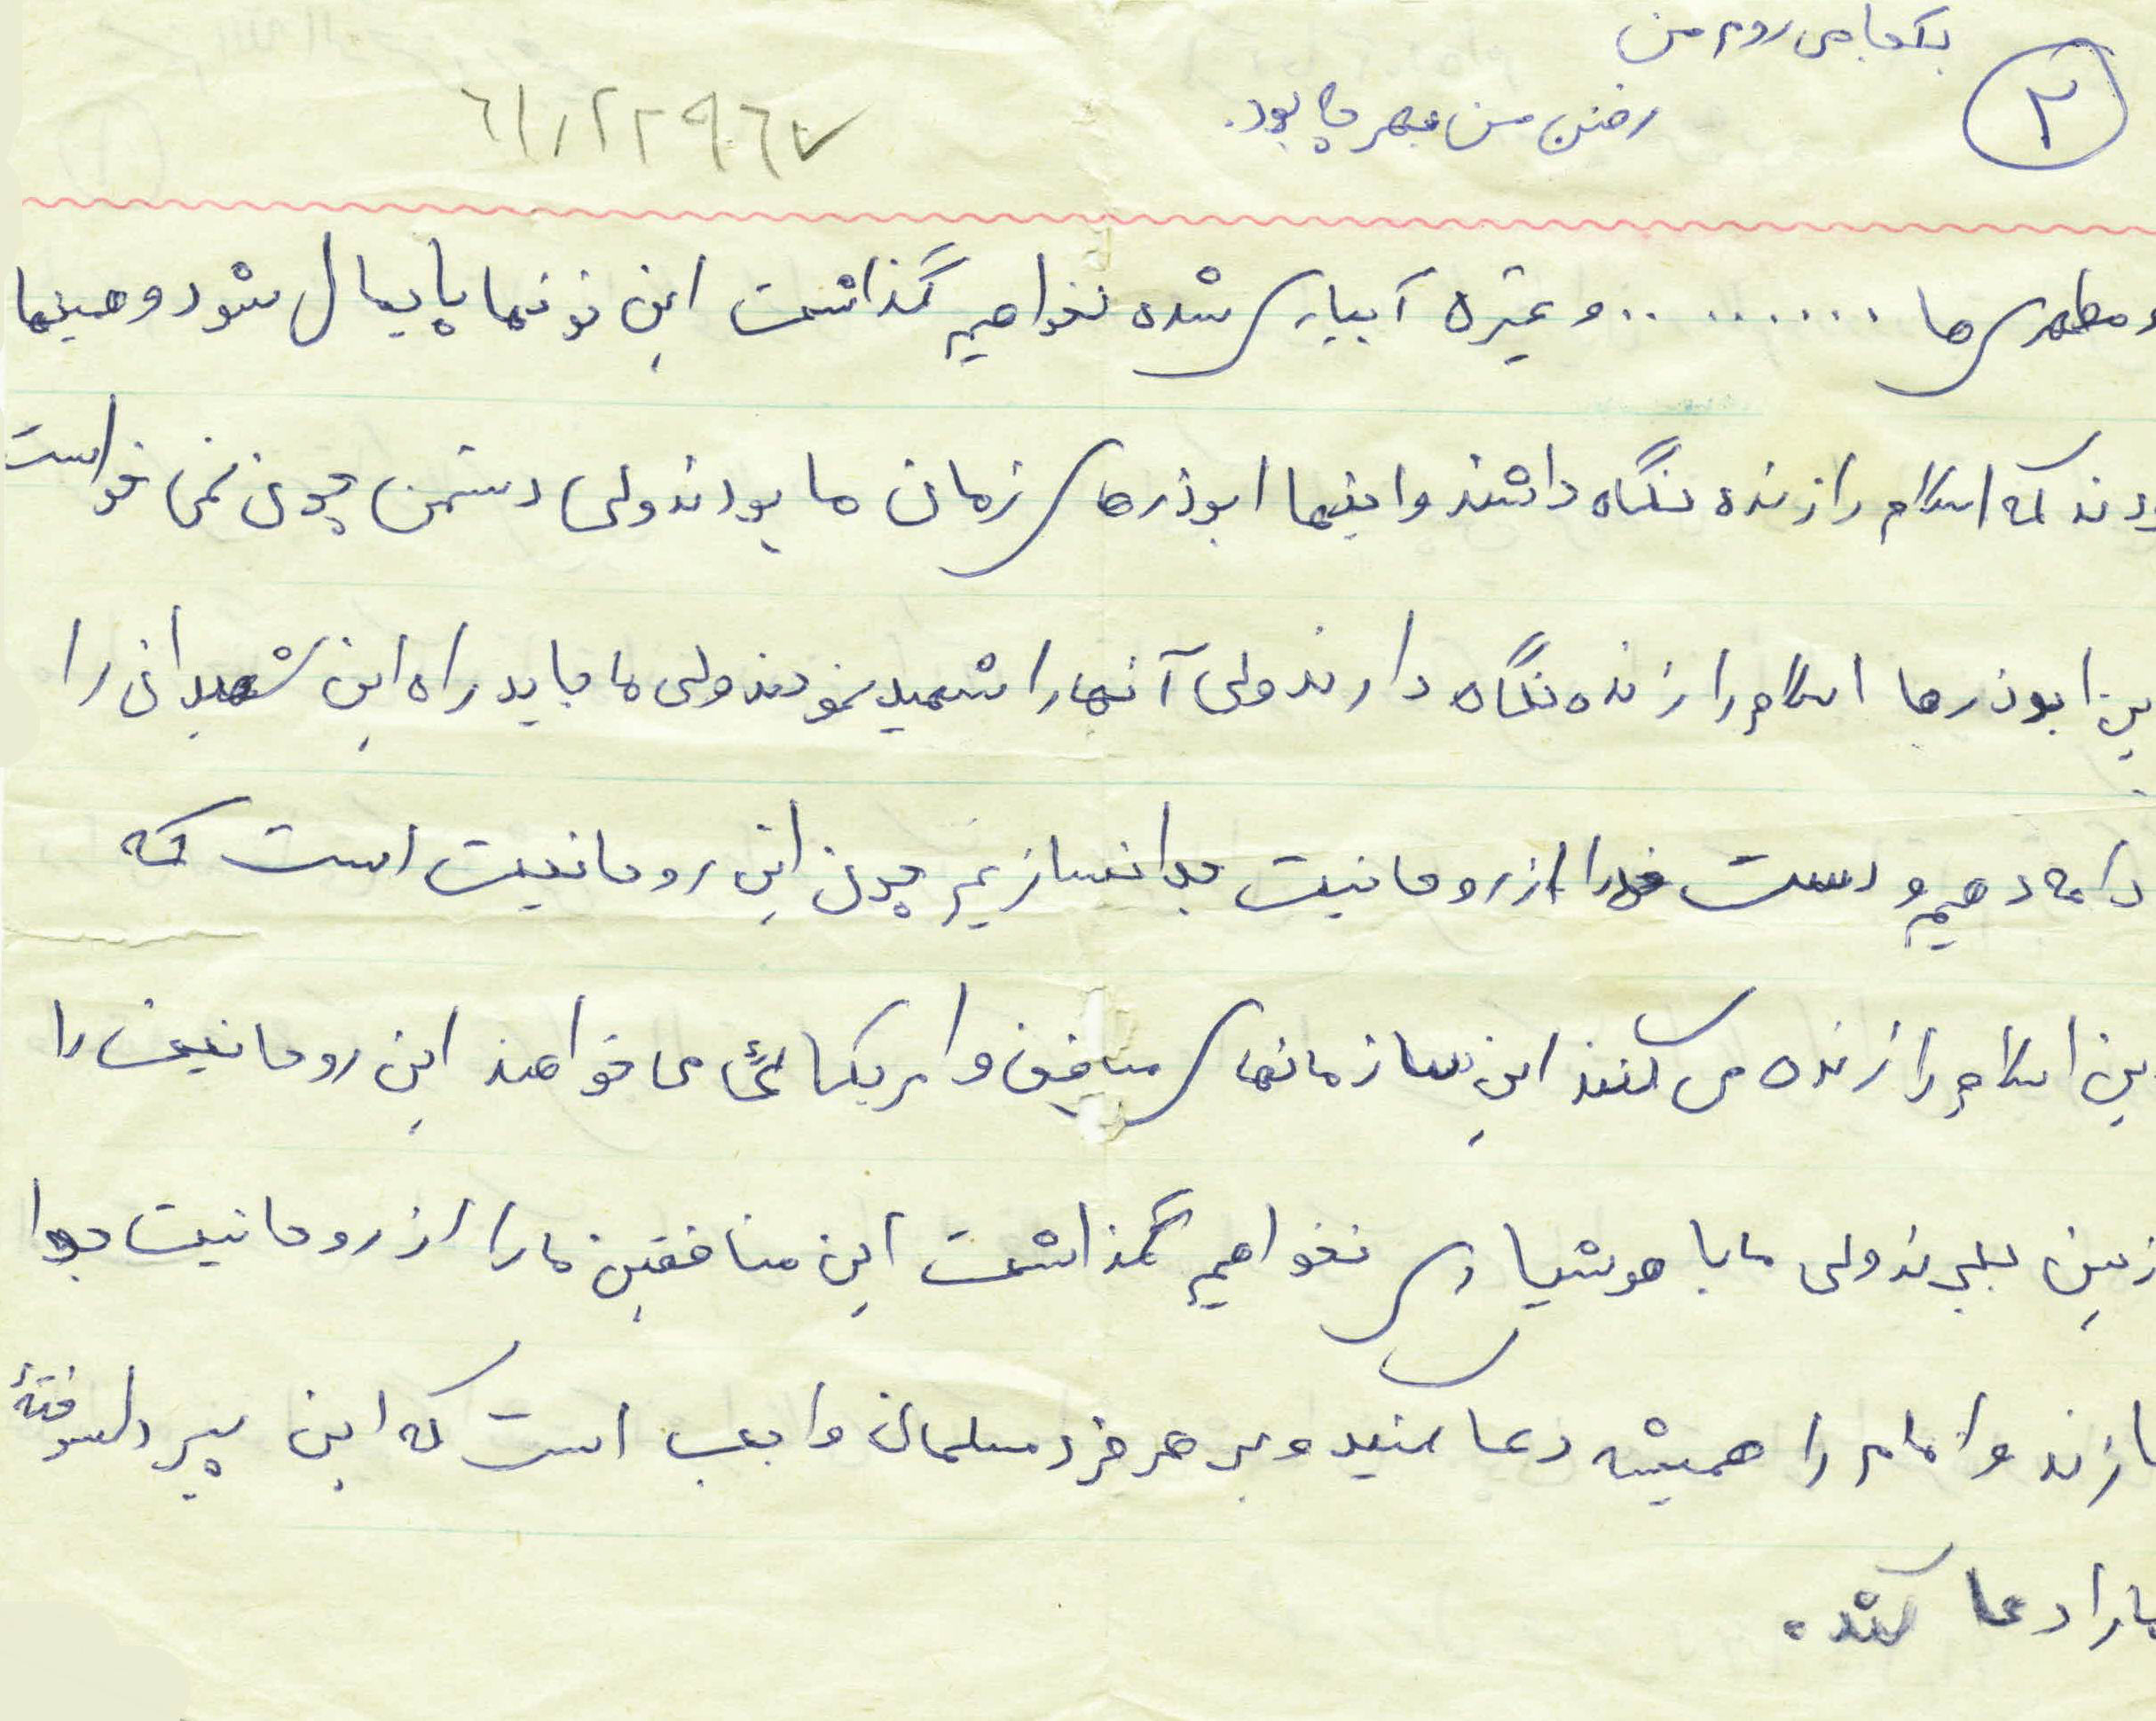 بکجا می روم من
۲
رفتن من بهر چه بود.
۶۱/۲۲۹۶۷
و مطهری ها .......... و غیره آبیاری شده نخواهیم گذاشت این خونها پایمال شود و همینها
بودند که اسلام را زنده نگاه داشتند و اینها ابوذرهای زمان ما بودند ولی دشمن چون نمی خواست
این ابوذرها اسلام را زنده نگاه دارند ولی آنها را شهید نمودند ولی ما باید راه این شهیدانی را
ادامه دهیم و دست خود را از روحانیت جدا نسازیم چون این روحانیت است که
دین اسلام را زنده می کنند این سازمانهای منافق و امریکائی می خواهند این روحانیت را
از بین ببرند ولی ما با هوشیاری نخواهیم گذاشت این منافقین ما را از روحانیت جدا
سازند و امام را همیشه دعا کنید و بر هر فرد مسلمان واجب است که این پیر دلسوختهٔ
ما را دعا کند.